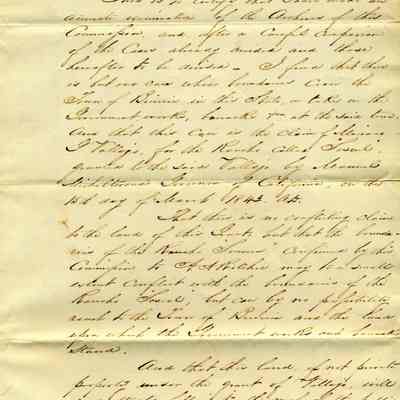 This is to certify that I have made an
accurate examination of the Archives of this
Commission, and after a Careful Comparison
of the Cases already decided and those
hereafter to be decided - I find that there
is but one case whose boundaries Cover the
Town of Benicia in this State, or takes in the
Government works, barracks &c at the said town.
And that this Case is the claim of Mariano
G Vallejo, for the Rancho called Suscol,
granted to the said Vallejo by Manuel
Micheltorena Governor of California, on the
15th day of March 1843.
That there is no conflicting claim
to the land of this Grant, but that the bounda-
ries of the Rancho "Suisun" confirmed by this
Commission to A A Ritchie may to a small
extent Conflict with the boundaries of the
Rancho Suscol, but can by no possibility
reach to the Town of Benicia or the land
upon which the Government works and barracks
Stand.
And that this land, if not private
property under the grant of Vallejo, will